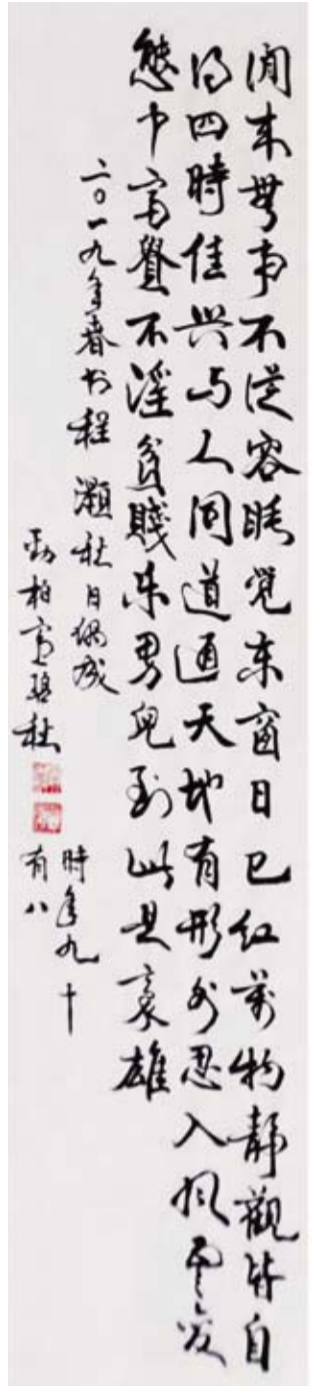 闲来無事不從容睡觉东窗日已红萬物靜觀皆自
得四時佳兴与人同道通天地有形外思入风雲变
態中富貴不淫貧賤乐男兒到此是豪雄
二〇一九年春书程灝秋日偶成
劲柏 秋
時年九十
有八